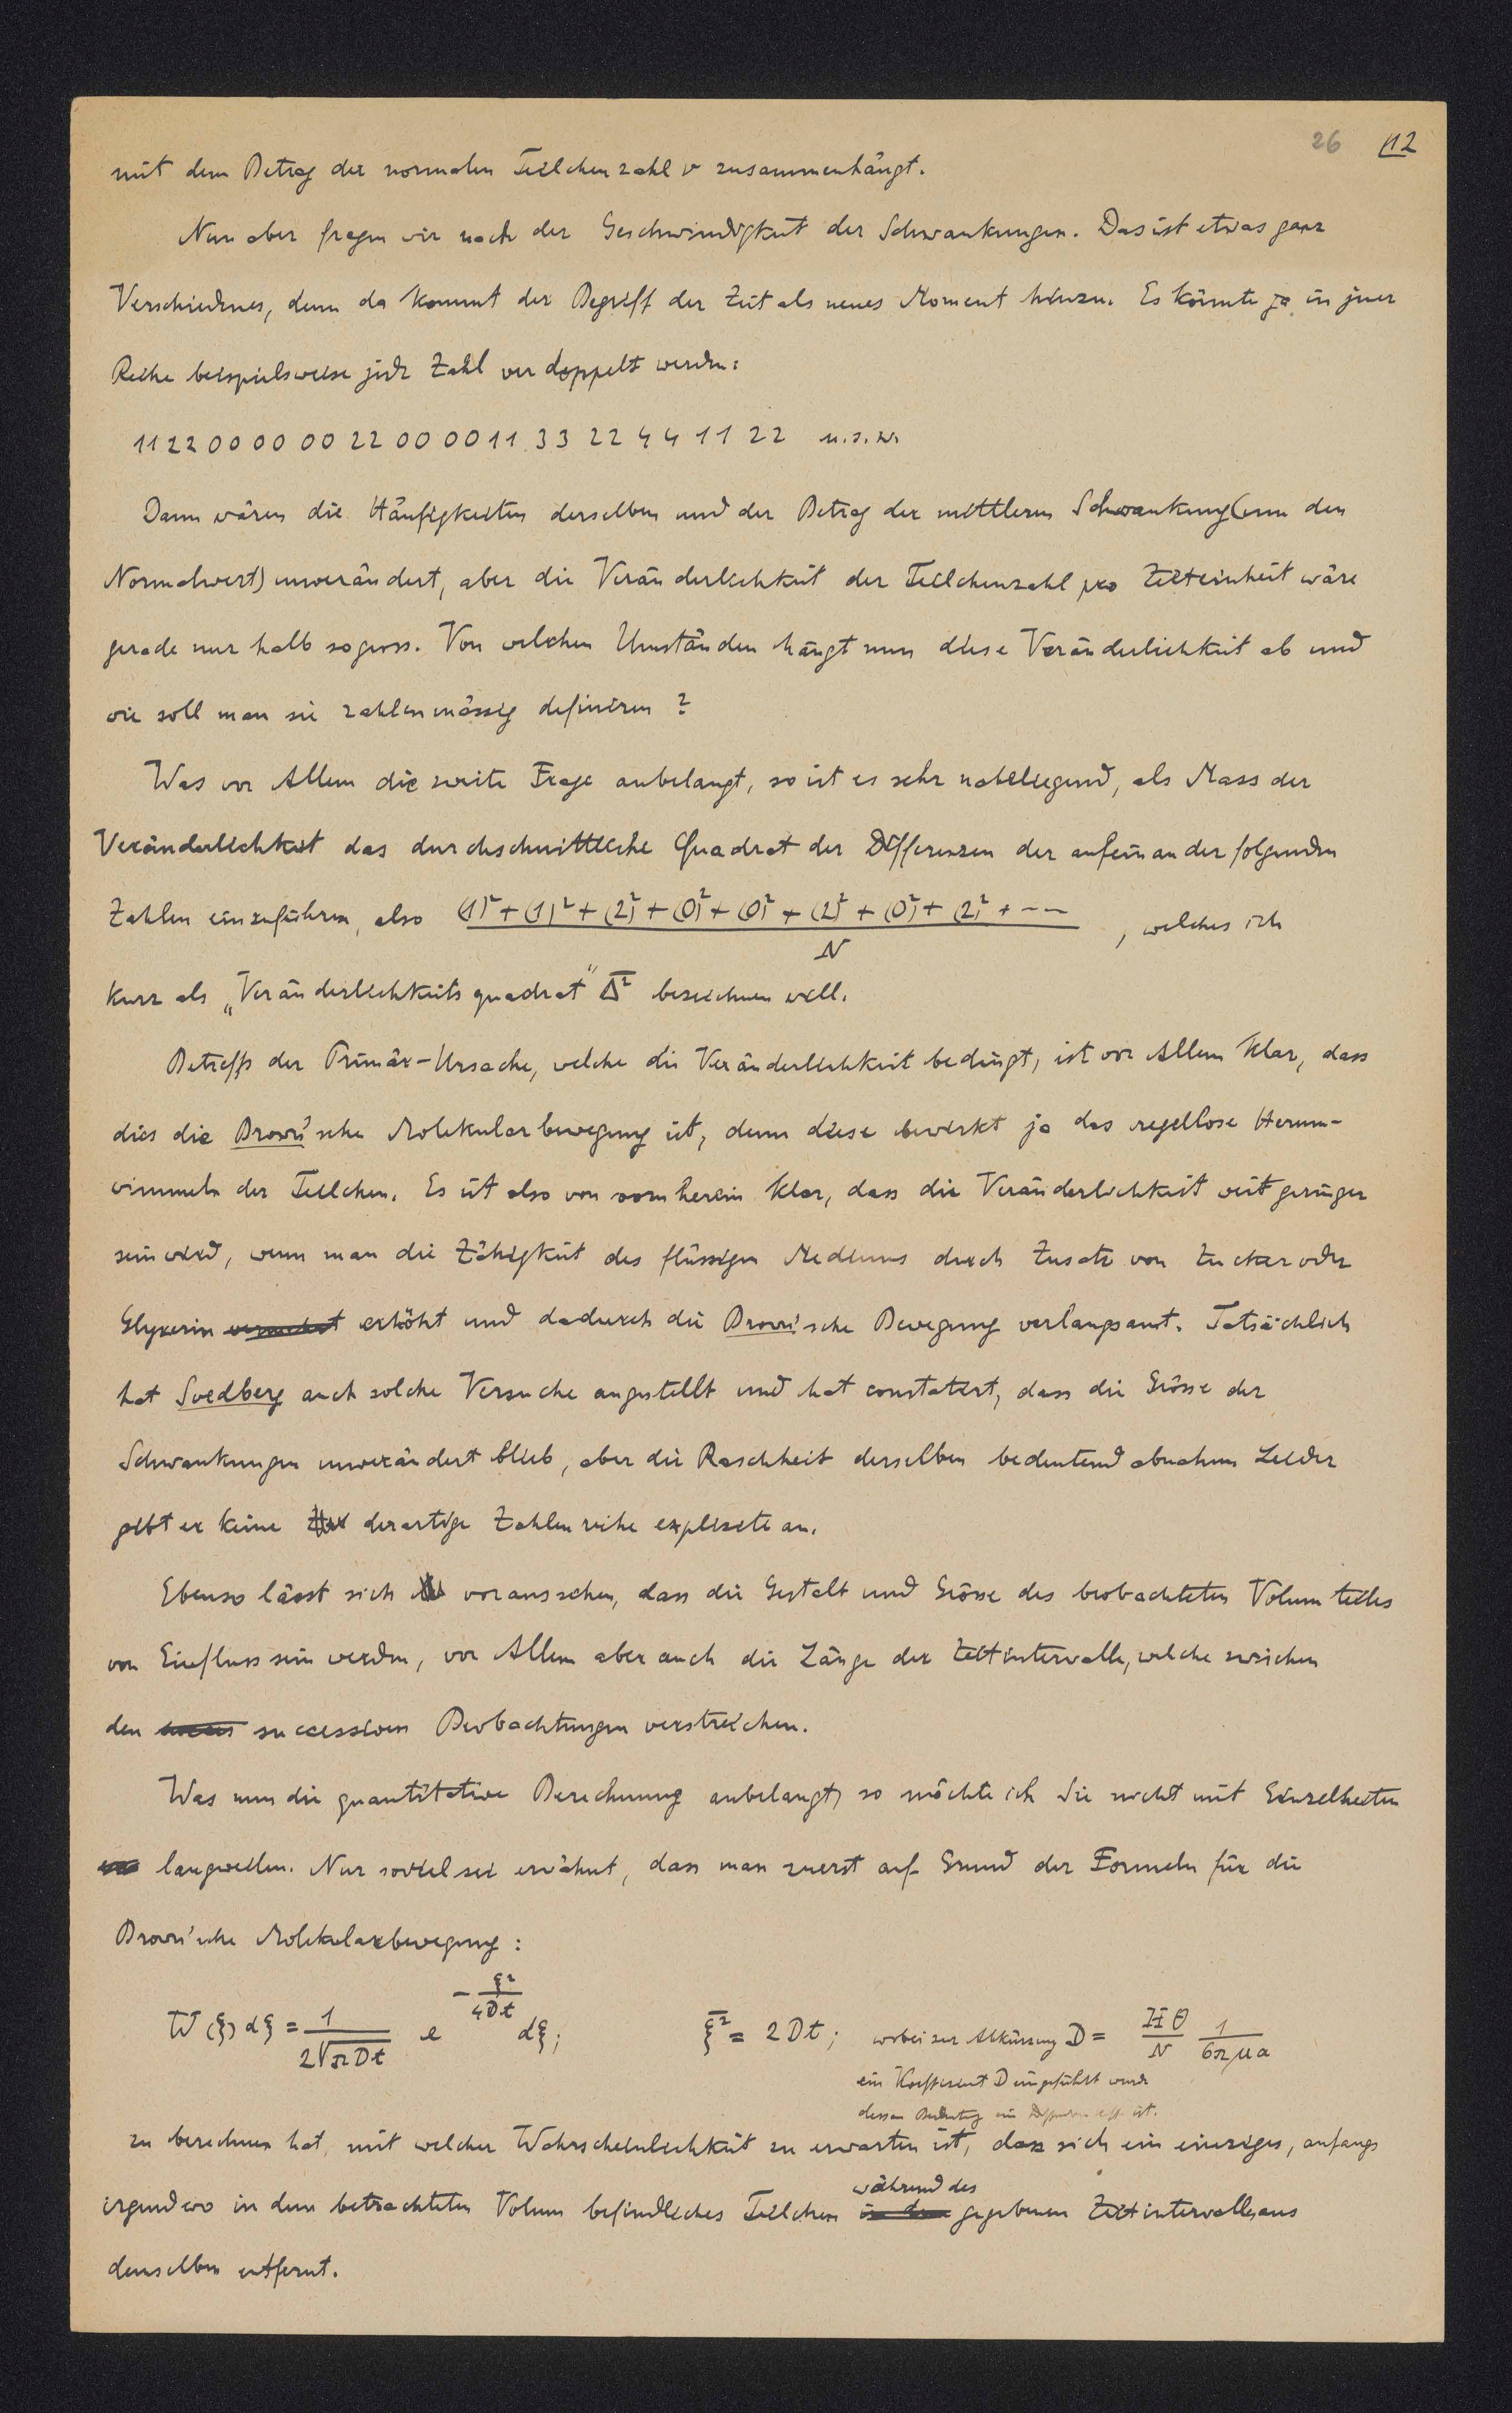 26 12
mit dem Betrag der normalen Teilchenzahl ν zusammenhängt.
Nun aber fragen wir nach der Geschwindigkeit der Schwankungen. Das ist etwas ganz
Verschiednes, denn da kommt der Begriff der Zeit als neues Moment hinzu. Es könnte ja in jener
Reihe beispielsweise jede Zahl verdoppelt werden:
11 22 00 00 00 22 00 00 11 33 22 44 11 22 u.s.w.
Dann wären die Häufigkeiten derselben und der Betrag der mittleren Schwankung (um den
Normalwert) unverändert, aber die Veränderlichkeit der Teilchenzahl pro Zeiteinheit wäre
gerade nur halb so gross. Von welchen Umständen hängt nun diese Veränderlichkeit ab und
wie soll man sie zahlenmässig definiren?
Was vor Allem die zweite Frage anbelangt, so ist es sehr naheliegend, als Mass der
Veränderlichkeit das durchschnittliche Quadrat der Differenzen der aufeinander folgenden
Zahlen einzuführen, also (1)² + (1)² + (2)² + (0)² + (0)² + (2)² + (0)² + (2)² + --- / N , welches ich
kurz als „Veränderlichkeitsquadrat" Δ̅² bezeichnen will.
Betreffs der Primär-Ursache, welche die Veränderlichkeit bedingt, ist vor Allem klar, dass
dies die Brown'sche Molekularbewegung ist, denn diese bewirkt ja das regellose Herum-
wimmeln der Teilchen. Es ist also von vornherein klar, dass die Veränderlichkeit weit geringer
sein wird, wenn man die Zähigkeit des flüssigen Mediums durch Zusatz von Zucker oder
Glyzerin erhöht und dadurch die Brown'sche Bewegung verlangsamt. Tatsächlich
hat Svedberg auch solche Versuche angestellt und hat constatirt, dass die Grösse der
Schwankungen unverändert blieb, aber die Raschheit derselben bedeutend abnahm. Leider
gibt er keine derartige Zahlenreihe explizite an.
Ebenso lässt sich voraussehen, dass die Gestalt und Grösse des beobachteten Volumteiles
von Einfluss sein werden, vor Allem aber auch die Länge der Zeitintervalle, welche zwischen
den successiven Beobachtungen verstreichen.
Was nun die quantitative Berechnung anbelangt, so möchte ich Sie nicht mit Einzelheiten
langweilen. Nur soviel sei erwähnt, dass man zuerst auf Grund der Formeln für die
Brown'sche Molekularbewegung:
W(ξ) dξ = 1/(2√πDt) e^(-ξ²/4Dt) dξ; ξ̅² = 2Dt; wobei zur Abkürzung D = HΘ/N 1/6πμa
ein Koeffizient D eingeführt wurde
dessen Bedeutung ein ist.
zu berechnen hat, mit welcher Wahrscheinlichkeit zu erwarten ist, dass sich ein einziges, anfangs
irgendwo in dem betrachteten Volum befindliches Teilchen während des gegebenen Zeitintervalles aus
demselben entfernt.